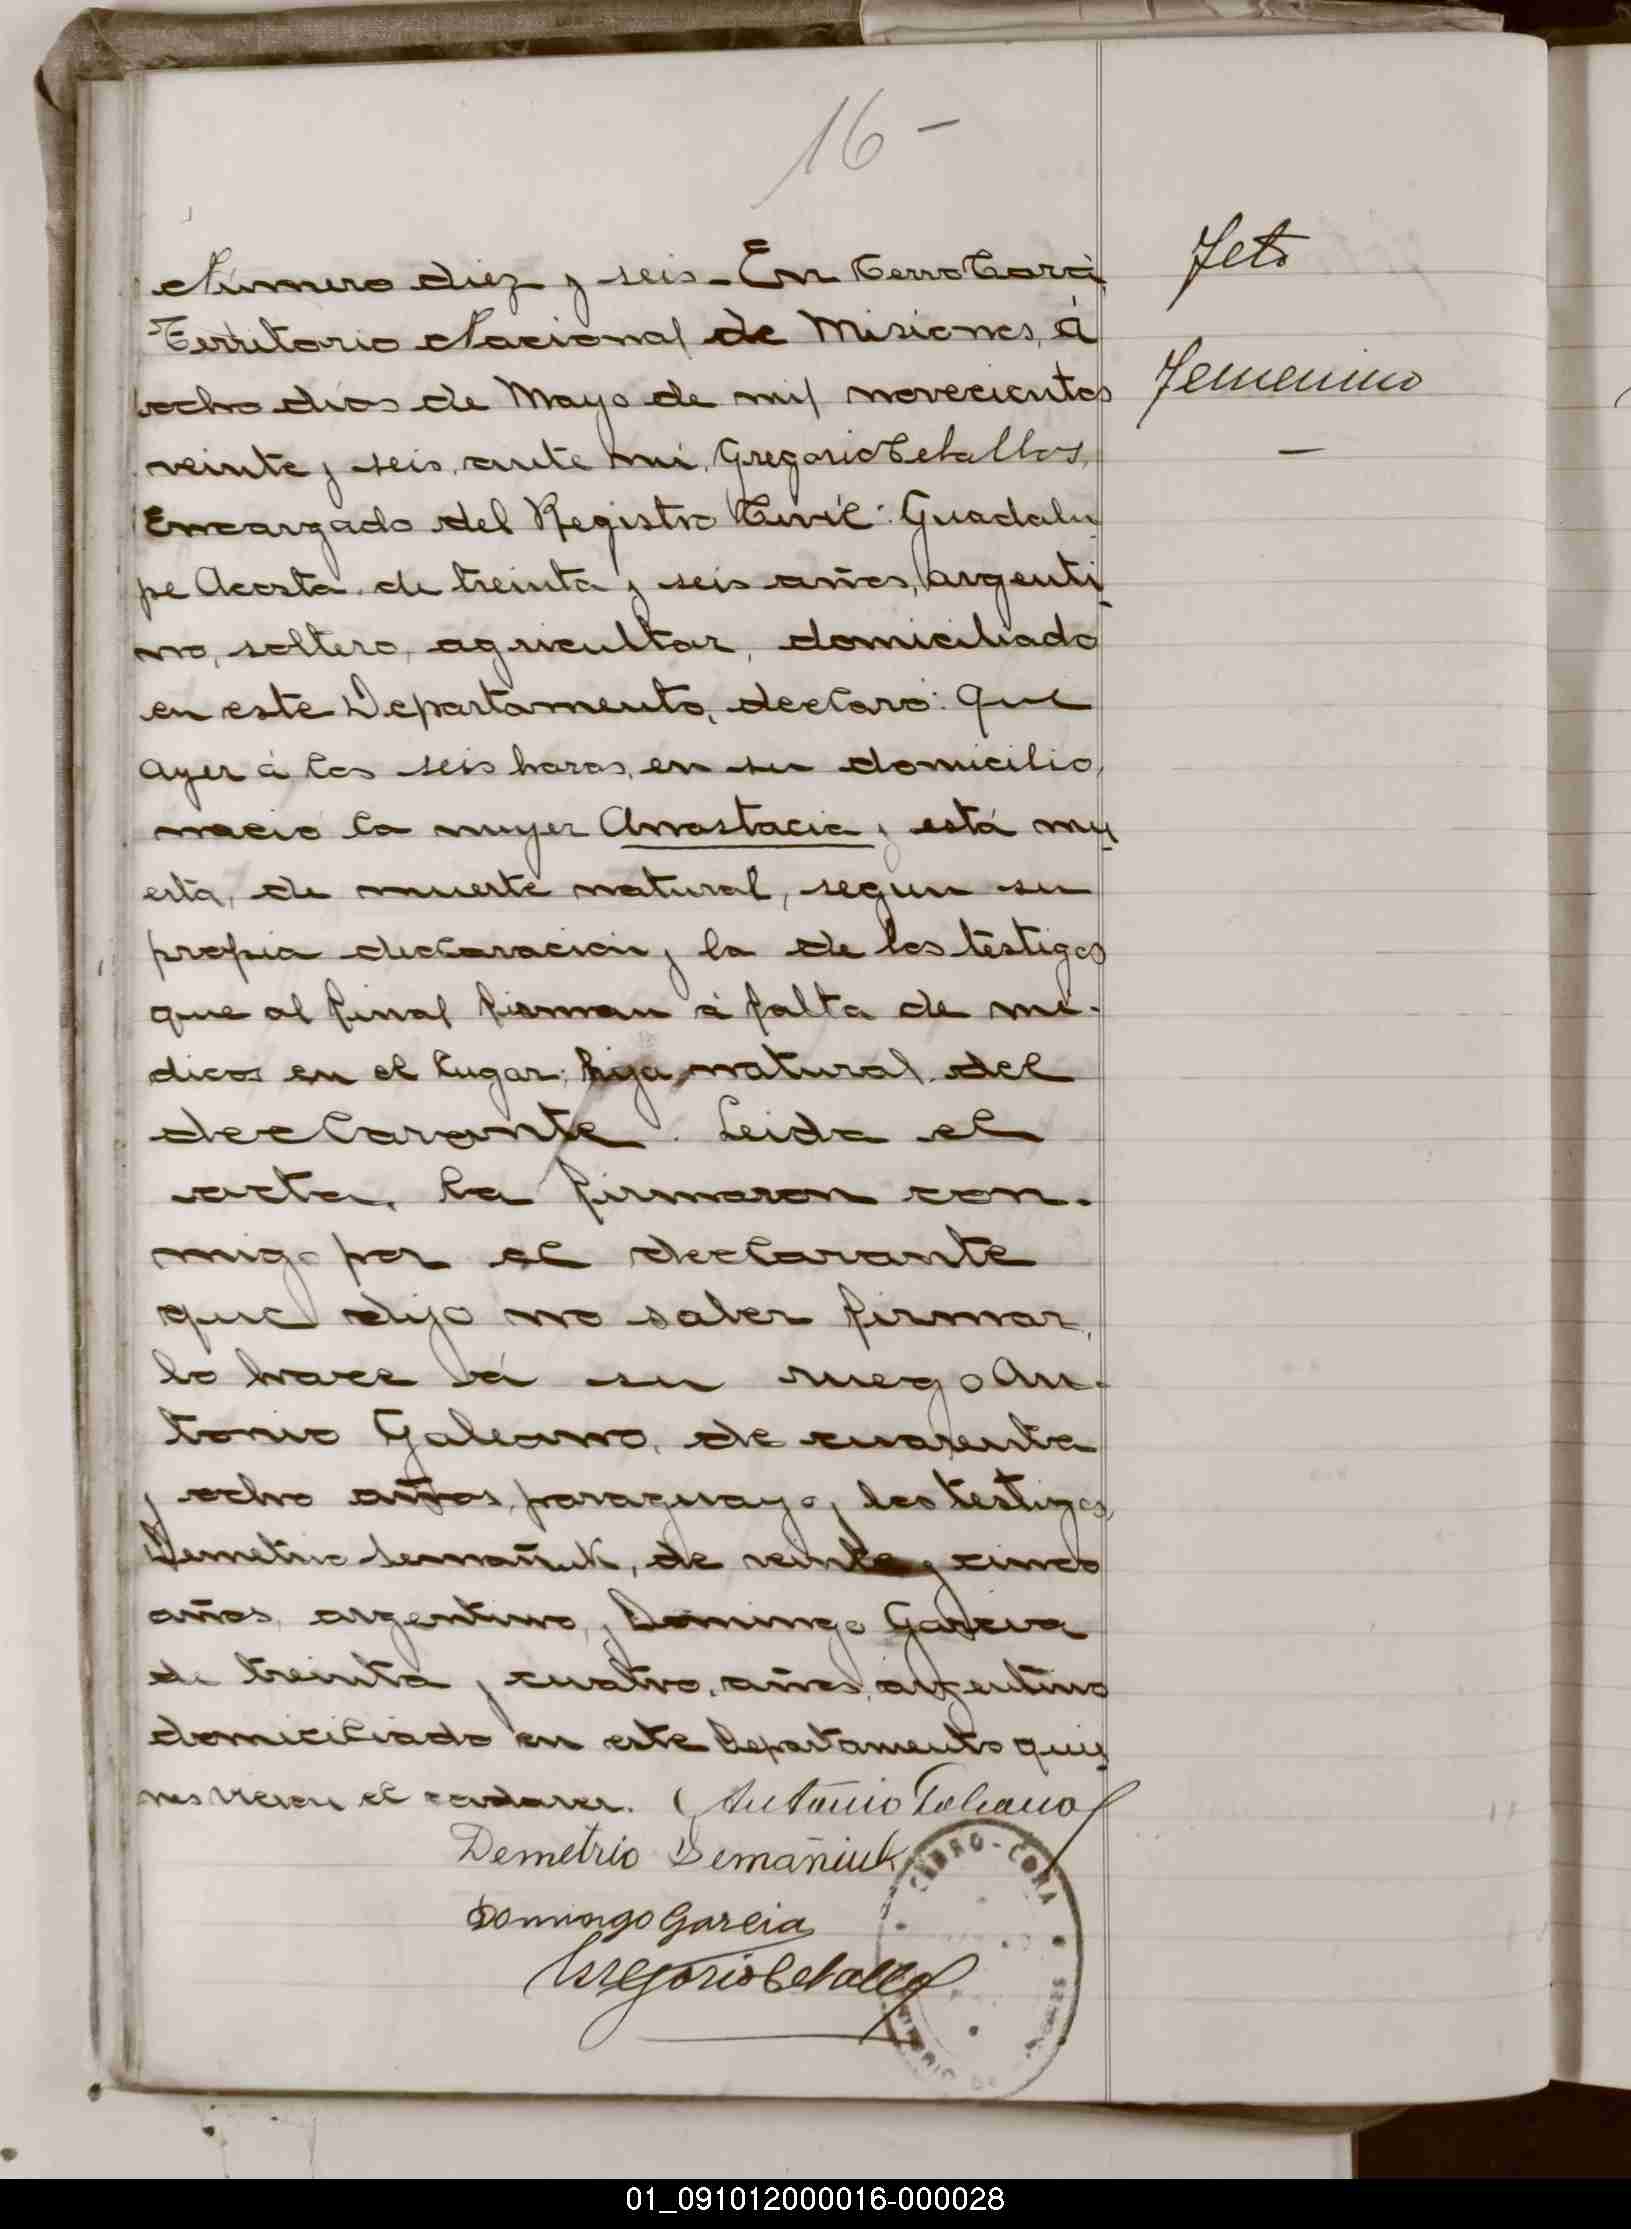 16 -
Feto
Femenino
-
Número diez y seis - En Cerro Corá,
Territorio Nacional de Misiones, á
ocho dias de Mayo de mil novecientos
veinte y seis, ante mi, Gregorio Ceballos,
Encargado del Registro Civil: Guadalu
pe Acosta de treinta y seis años, argenti
no, soltero, agricultor, domiciliado
en este Departamento, declaró: Que
ayer á las seis horas, en su domicilio,
nació la mujer Anastacia y está mu
erta, de muerte natural, segun su
propia declaración y la de los testigos
que al final firman á falta de mé-
dicos en el lugar; hija natural del
declarante. Leida el
acta, la firmaron con-
migo por el declarante
que dijo no saber firmar,
lo hace á su ruego An-
tonio Galeano, de cuarenta
y ocho años, paraguayo y los testigos,
Demetrio Semañuk, de veinte y cinco
años, argentino, y Domingo Garcia
de treinta y cuatro, años, argentino
domiciliado en este Departamento quie
nes vieron el cadaver. Antonio Galeano
Demetrio Semañiuk
Domingo Garcia
Gregorio Ceballos
CERRO-CORA